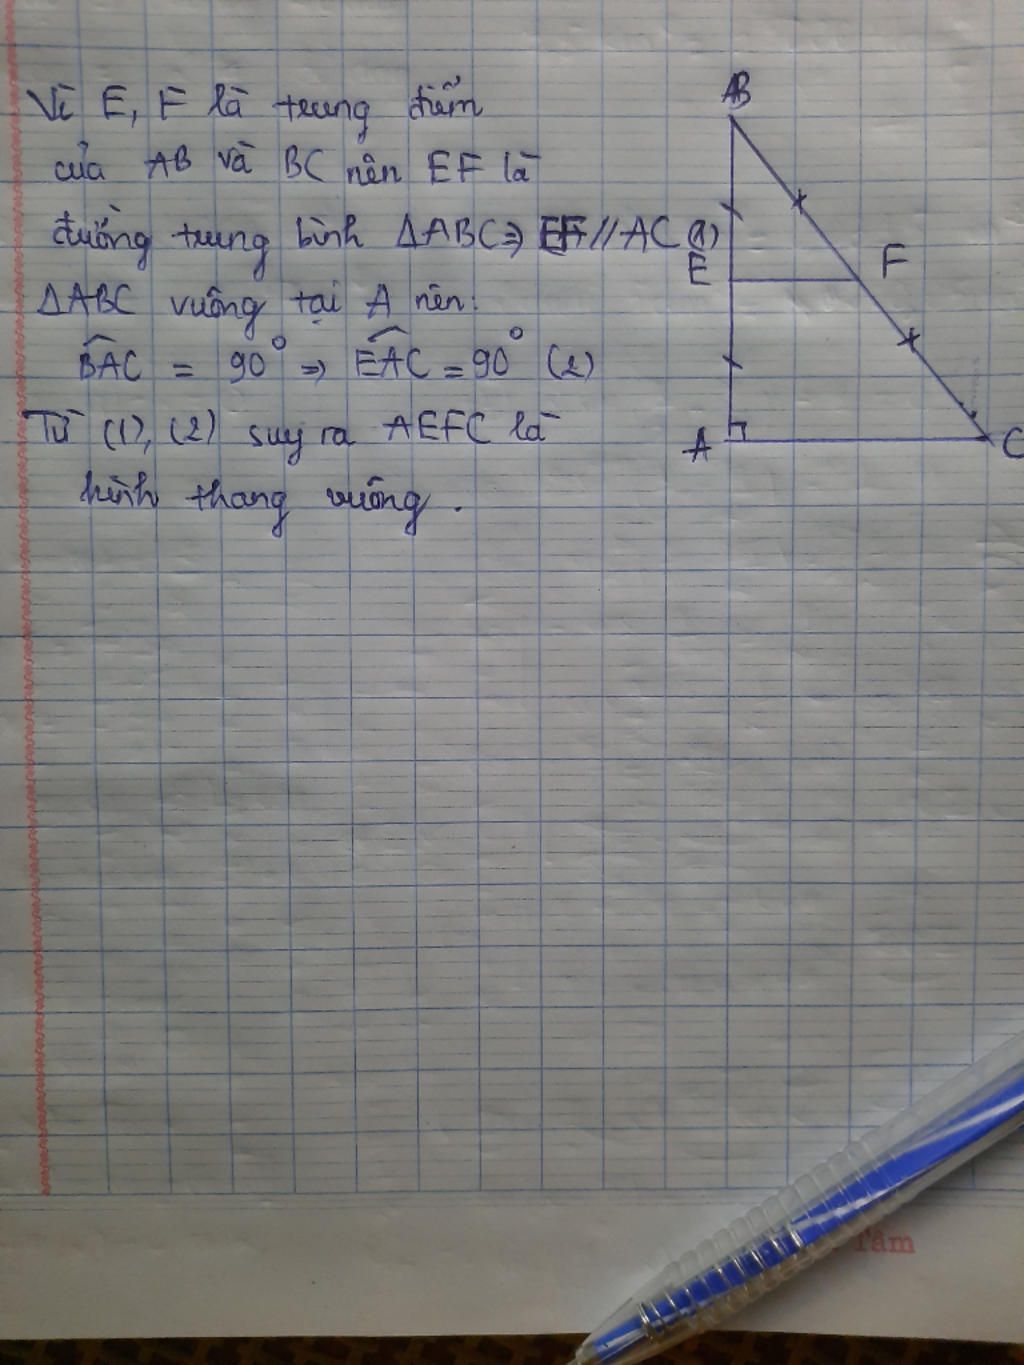 Vì E, F là trung điểm
của AB và BC nên EF là
đường trung bình ΔABC ⇒ EF // AC (1)
ΔABC vuông tại A nên:
BAC = 90° ⇒ EAC = 90° (2)
Từ (1), (2) suy ra AEFC là
hình thang vuông.
B
E
F
A
C
Tâm